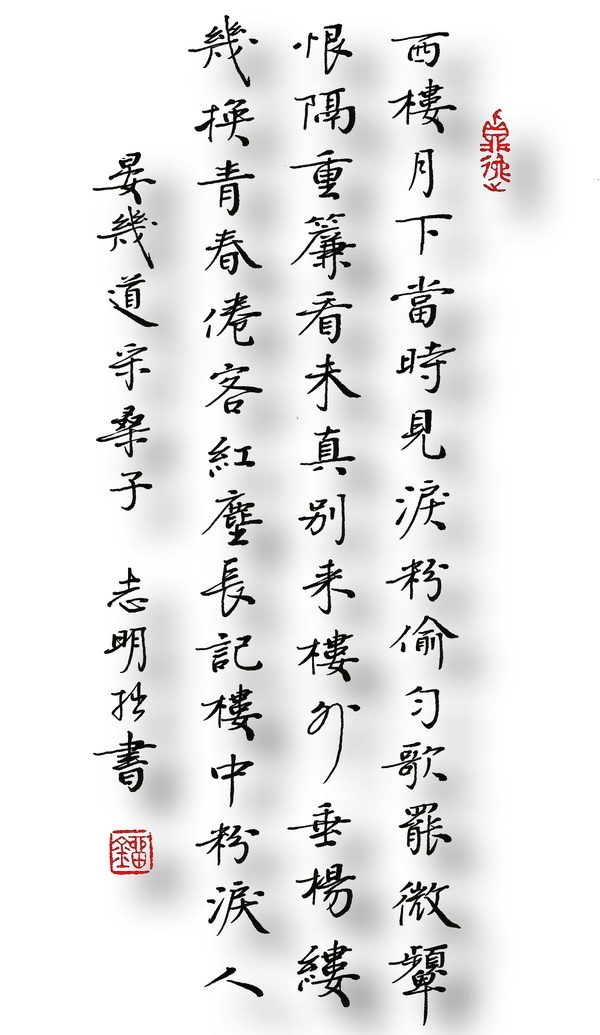 西樓月下當時見淚粉偷勻歌罷微顰
恨隔重簾看未真別来樓外垂楊縷
幾換青春倦客紅塵長記樓中粉淚人
晏幾道采桑子 志明拙書